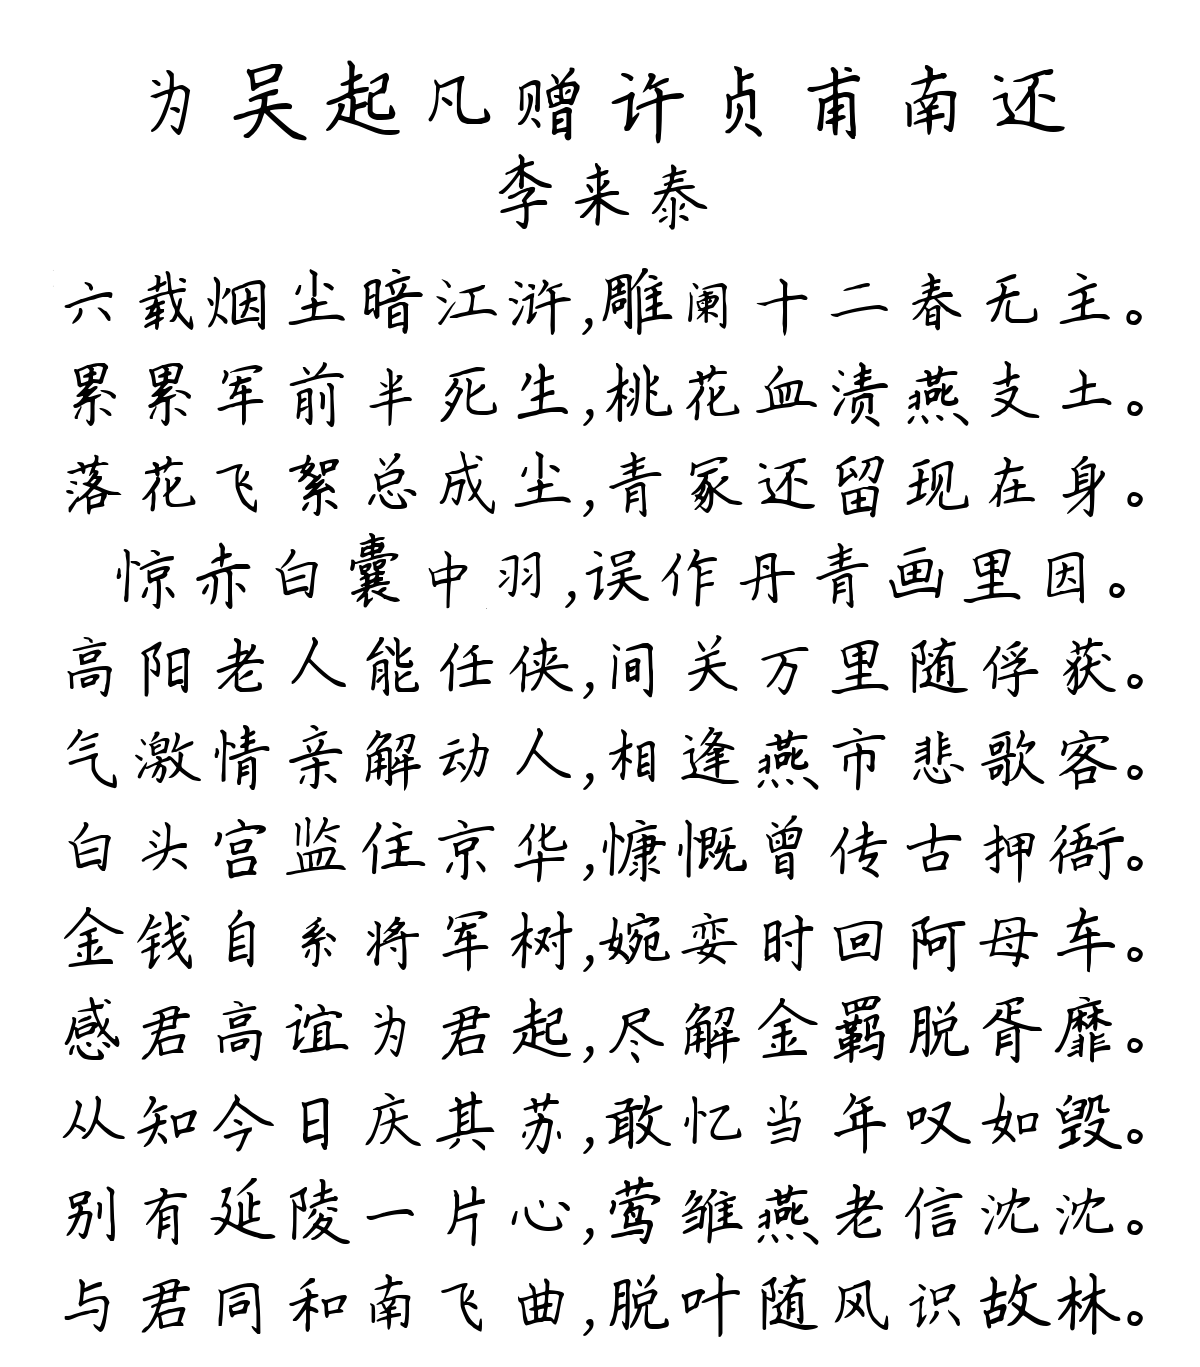 为吴起凡赠许贞甫南还
李来泰
六载烟尘暗江浒,雕阑十二春无主。
累累军前半死生,桃花血渍燕支土。
落花飞絮总成尘,青冢还留现在身。
惊赤白囊中羽,误作丹青画里因。
高阳老人能任侠,间关万里随俘获。
气激情亲解动人,相逢燕市悲歌客。
白头宫监住京华,慷慨曾传古押衙。
金钱自系将军树,婉娈时回阿母车。
感君高谊为君起,尽解金羁脱胥靡。
从知今日庆其苏,敢忆当年叹如毁。
别有延陵一片心,莺雏燕老信沈沈。
与君同和南飞曲,脱叶随风识故林。